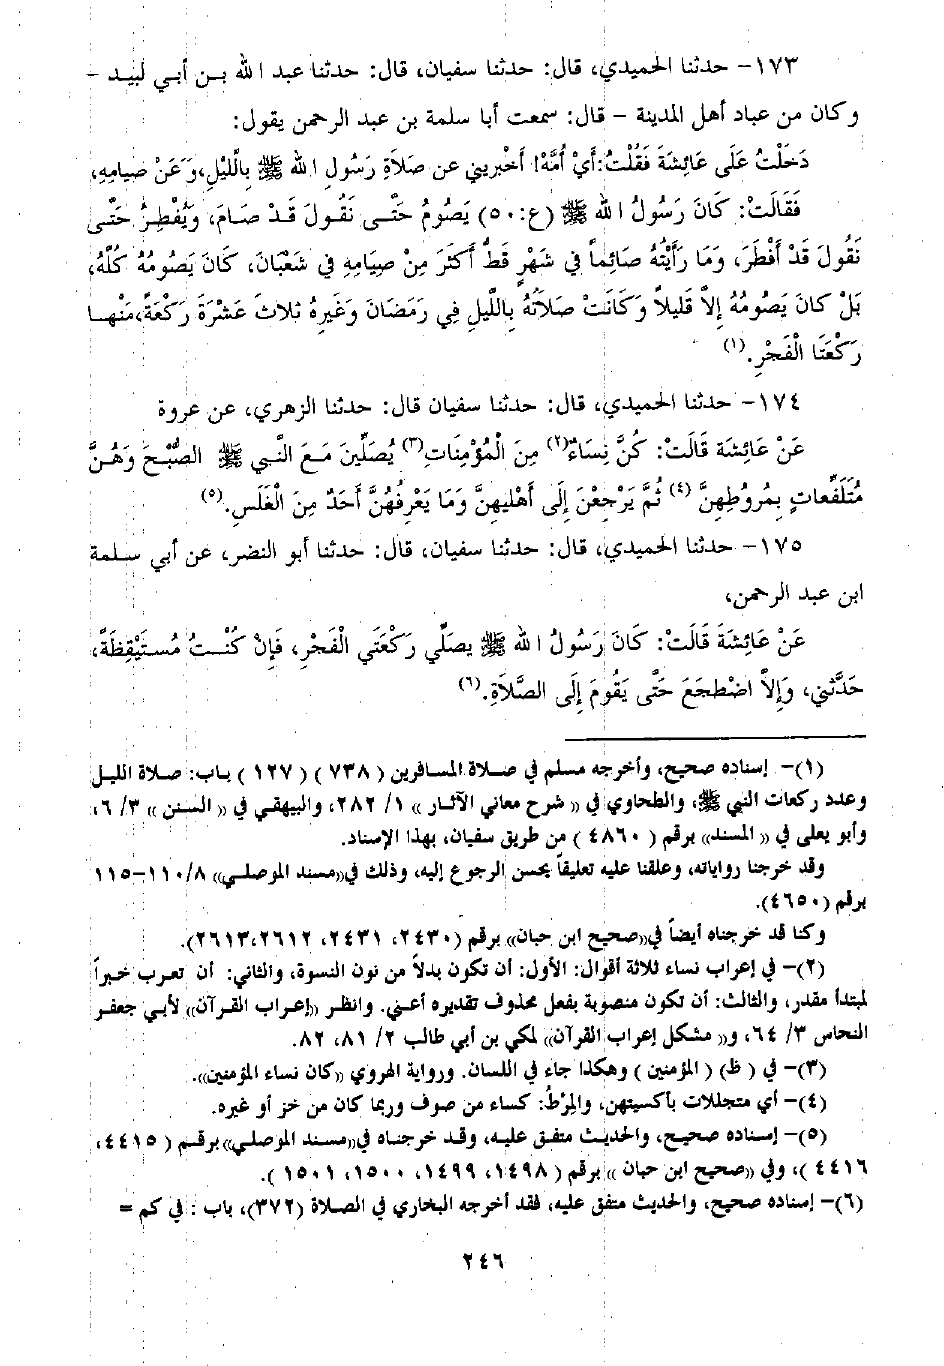 ١٧٣- حدثنا الحميدي، قال: حدثنا سفيان، قال: حدثنا عبد الله بن أبي لبيد -
وكان من عباد أهل المدينة - قال: سمعت أبا سلمة بن عبد الرحمن يقول:
دَخَلْتُ عَلَى عَائِشَةَ فَقُلْتُ: أَيْ أُمَّهْ! أَخْبِرِيني عن صَلاَةِ رَسُولِ الله ﷺ بِاللَّيْلِ، وَعَنْ صِيامِهِ،
فَقَالَتْ: كَانَ رَسُولُ الله ﷺ (ع:٥٠) يَصُومُ حَتَّى نَقُولَ قَدْ صَامَ، وَيُفْطِرُ حَتَّى
نَقُولَ قَدْ أَفْطَرَ، وَمَا رَأَيْتُهُ صَائِماً فِي شَهْرٍ قَطُّ أَكْثَرَ مِنْ صِيَامِهِ فِي شَعْبَانَ، كَانَ يَصُومُهُ كُلَّهُ،
بَلْ كَانَ يَصُومُهُ إِلاَّ قَلِيلاً وَكَانَتْ صَلاَتُهُ بِاللَّيلِ فِي رَمَضَانَ وَغَيرِهُ ثلاثَ عَشْرَةَ رَكْعَةً، مَنْهَا
رَكْعَتَا الْفَجْرِ.(١)
١٧٤- حدثنا الحميدي، قال: حدثنا سفيان قال: حدثنا الزهري، عن عروة
عَنْ عَائِشَة قَالَتْ: كُنَّ نِسَاءٌ(٢) مِنَ الْمُؤْمِنَاتِ(٣) يُصَلِّينَ مَعَ النَّبي ﷺ الصُّبْحَ وَهُنَّ
مُتَلَفِّعاتٍ بِمُروُطِهِنَّ (٤) ثُمَّ يَرْجِعْنَ إِلَى أَهْلِيهِنَّ وَمَا يَعْرِفُهُنَّ أَحَدٌ مِنَ الْغَلَسِ.(٥)
١٧٥- حدثنا الحميدي، قال: حدثنا سفيان، قال: حدثنا أبو النضر، عن أبي سلمة
ابن عبد الرحمن،
عَنْ عَائِشَةَ قَالَتْ: كَانَ رَسُولُ الله ﷺ يصَلِّي رَكْعَتَي الْفَجْرِ، فَإِنْ كُنْتُ مُستَيْقِظَةً،
حَدَّثَنِي، وَإِلاَّ اضْطَجَعَ حَتَّى يَقُومَ إِلَى الصَّلاَةِ.(٦)
(١)- إسناده صحيح، وأخرجه مسلم في صلاة المسافرين ( ٧٣٨ ) ( ١٢٧ ) باب: صلاة الليل
وعدد ركعات النبي ﷺ، والطحاوي في « شرح معاني الآثار » ١/ ٢٨٢، والبيهقي في « السنن » ٣/ ٦،
وأبو يعلى في « المسند» برقم ( ٤٨٦٠ ) من طريق سفيان، بهذا الإسناد.
وقد خرجنا رواياته، وعلقنا عليه تعليقاً يحسن الرجوع إليه، وذلك في«مسند الموصلي» ٨/ ١١٠-١١٥
برقم (٤٦٥٠).
وكنا قد خرجناه أيضاً في«صحيح ابن حبان» برقم (٢٤٣٠، ٢٤٣١، ٢٦١٢،٢٦١٣).
(٢)- في إعراب نساء ثلاثة أقوال: الأول: أن تكون بدلاً من نون النسوة، والثاني: أن تعرب خبراً
لمبتدأ مقدر، والثالث: أن تكون منصوبة بفعل محذوف تقديره أعني. وانظر «إعراب القرآن» لأبي جعفر
النحاس ٣/ ٦٤، و« مشكل إعراب القرآن» لمكي بن أبي طالب ٢/ ٨١، ٨٢.
(٣)- في ( ظ) ( المؤمنين ) وهكذا جاء في اللسان. ورواية الهروي «كان نساء المؤمنين».
(٤)- أي متجللات بأكسيتهن، والمِرْطُ: كساء من صوف وربما كان من خز أو غيره.
(٥)- إسناده صحيح، والحديث متفق عليه، وقد خرجناه في«مسند الموصلي» برقم ( ٤٤١٥،
٤٤١٦ )، وفي «صحيح ابن حبان » برقم ( ١٤٩٨، ١٤٩٩، ١٥٠٠، ١٥٠١ ).
(٦)- إسناده صحيح، والحديث متفق عليه، فقد أخرجه البخاري في الصلاة (٣٧٢)، باب : في كم =
٢٤٦